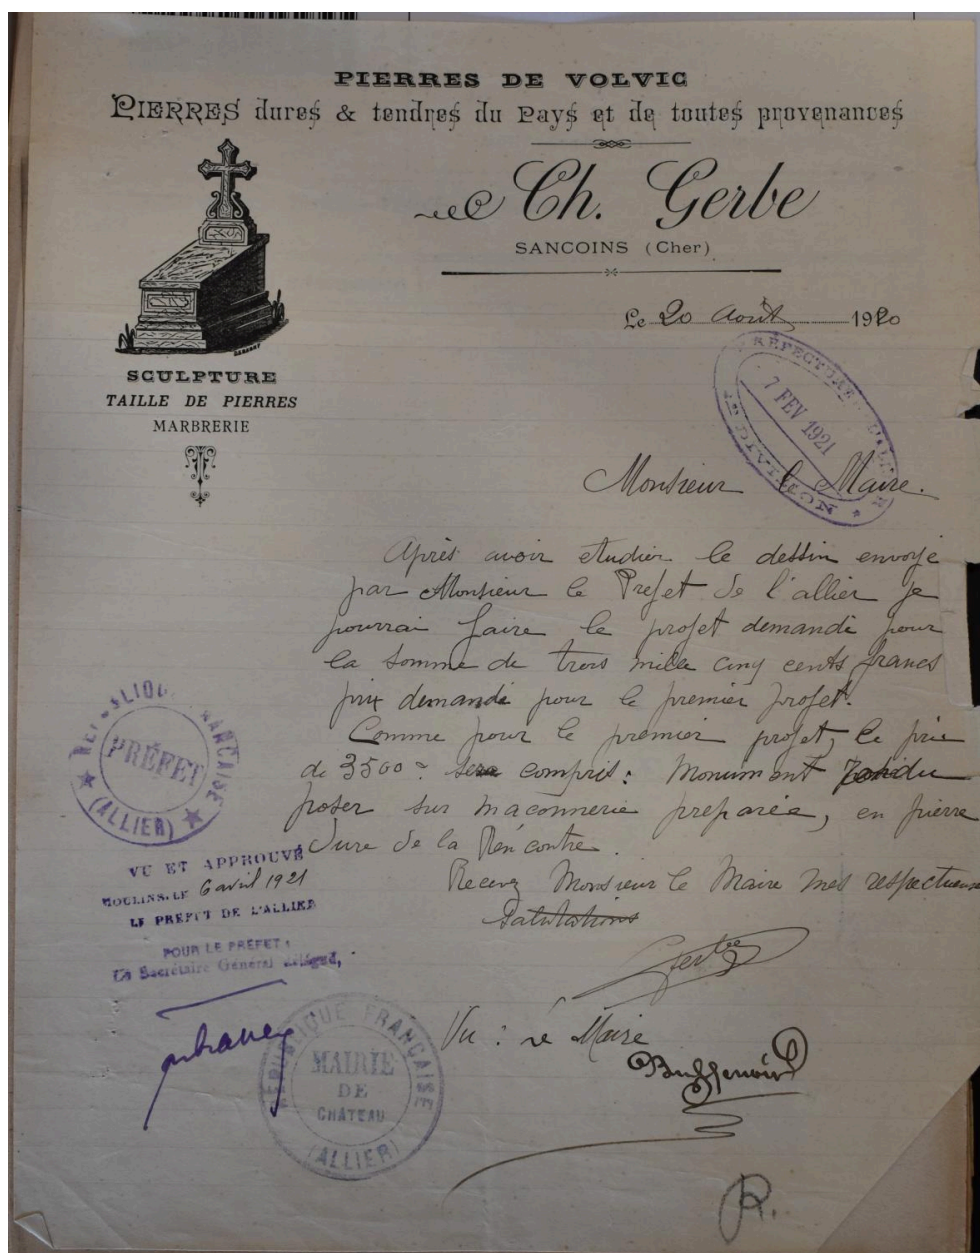 PIERRES DE VOLVIC
PIERRES dures & tendres du Pays et de toutes provenances
Ch. Gerbe
SANCOINS (Cher)
Le 20 Août 1920
SCULPTURE
TAILLE DE PIERRES
MARBRERIE
PRÉFECTURE DE L'ALLIER
7 FEV 1921
DIVISION
Monsieur le Maire.
Après avoir etudier le dessin envoyé
par Monsieur le Prefet de l'allier je
pourrai faire le projet demandé pour
la somme de trois mille cinq cents francs
prix demandé pour le premier projet.
Comme pour le premier projet, le prix
de 3500 sera compris : Monument rendu
poser sur maconnerie preparée, en pierre
dure de la Rencontre.
Recevez Monsieur le Maire mes respectueuses
Salutations
Gerbe
RÉPUBLIQUE FRANÇAISE
PRÉFET
(ALLIER)
VU ET APPROUVÉ
MOULINS, LE 6 avril 1921
LE PRÉFET DE L'ALLIER
POUR LE PRÉFET :
Le Secrétaire Général délégué,
Vu : le Maire
Buffenoir
RÉPUBLIQUE FRANÇAISE
MAIRIE
DE
CHÂTEAU
(ALLIER)
R.